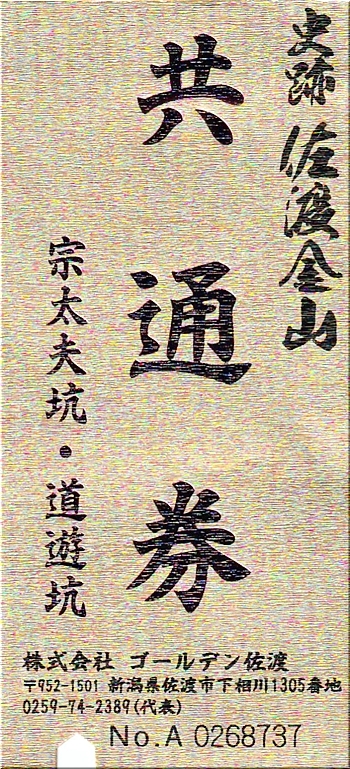 史跡 佐渡金山
共通券
宗太夫坑・道遊坑
株式会社 ゴールデン佐渡
〒952-1501 新潟県佐渡市下相川1305番地
0259-74-2389(代表)
No.A 0268737